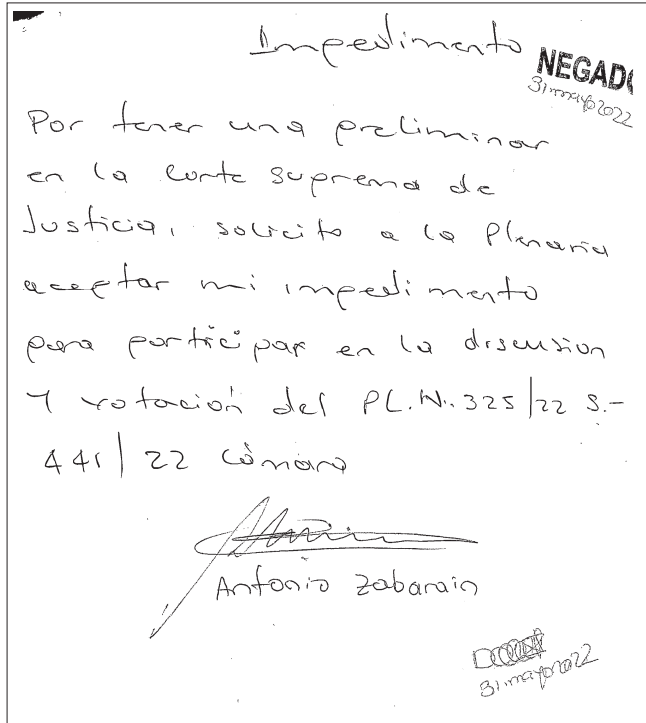 Impedimento
NEGADO
31 mayo 2022
Por tener una preliminar
en la Corte Suprema de
Justicia, solicito a la Plenaria
aceptar mi impedimento
para participar en la discusion
y votación del PL.N.. 325/22 S.-
441/22 Cámara
Antonio Zabarain
31 mayo 2022